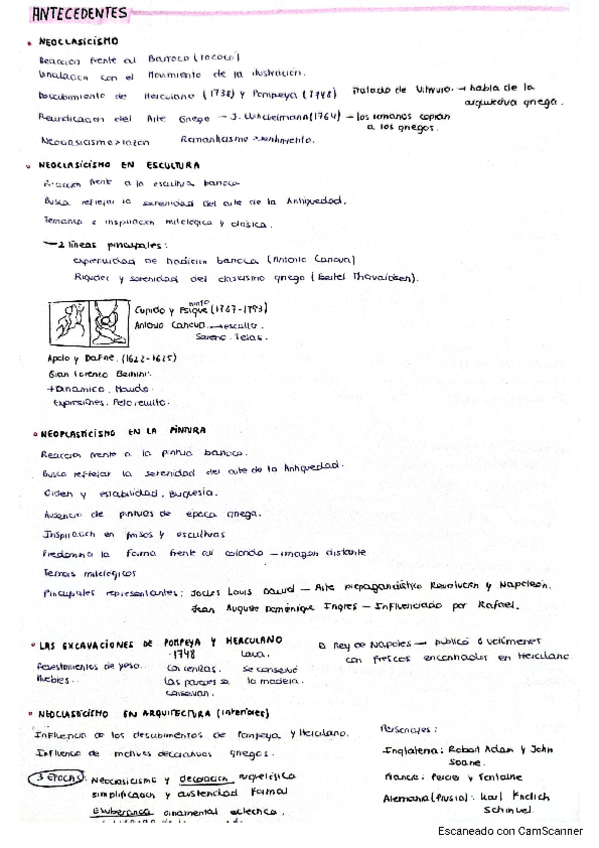 ANTECEDENTES
• NEOCLASICISMO
Reacción frente al Barroco (rococó)
Vinculación con el Movimiento de la ilustración.
Descubrimiento de Herculano (1738) y Pompeya (1748) Tratado de Vitruvio. → habla de la arquitectura griega.
Reivindicación del Arte Griego → J. Winckelmann (1764) → los romanos copian a los griegos.
Neoclasicismo > razón Romanticismo > sentimiento.
• NEOCLASICISMO EN ESCULTURA
Reacción frente a la escultura barroca
Busca reflejar la serenidad del arte de la Antigüedad.
Temática e inspiración mitológica y clásica.
→ 2 líneas principales:
expresividad de tradición barroca (Antonio Canova)
Rigidez y serenidad del clasicismo griego (Bertel Thorvaldsen).
Cupido y Psique (1787-1793)
Antonio Canova →
Sereno. Telas.
Apolo y Dafne. (1622-1625)
Gian Lorenzo Bernini.
+Dinámico.
Expresiones. Pelo
• NEOPLASTICISMO EN LA PINTURA
Reacción frente a la pintura barroca.
Busca reflejar la serenidad del arte de la Antigüedad.
Orden y estabilidad.
Ausencia de pinturas de época griega.
Inspiración en frisos y esculturas
Predomina la forma frente al colorido → imagen distante
Temas mitológicos
Principales representantes: Louis David → Arte propagandístico Revolución y Napoleón.
Jean Auguste Dominique Ingres → Influenciado por Rafael.
• LAS EXCAVACIONES DE POMPEYA Y HERCULANO
1748 Lava.
Revestimientos de yeso. Con cenizas. Se conservó
Muebles. Las paredes se la madera.
conservan.
Rey de Nápoles → publicó 8 volúmenes
con frescos encontrados en Herculano
• NEOCLASICISMO EN ARQUITECTURA (interiores)
Influencia de los descubrimientos de Pompeya y Herculano.
Influencia de motivos decorativos griegos.
3 ETAPAS: Neoclasicismo y decoración arqueológica
simplificación y austeridad formal
Exuberancia ornamental ecléctica
Personajes:
Inglaterra: Robert Adam y John
Soane.
Francia: Percier y Fontaine
Alemania (Prusia): Karl
Schinkel.
Escaneado con CamScanner